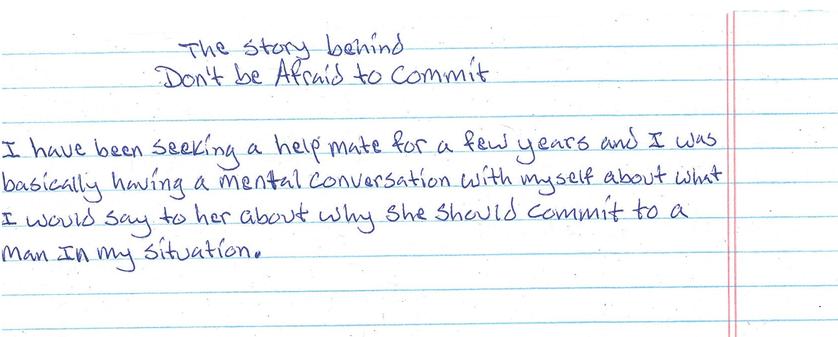 The story behind
Don't be Afraid to Commit
I have been seeking a help mate for a few years and I was
basically having a mental conversation with myself about what
I would say to her about why she should commit to a
man In my situation.